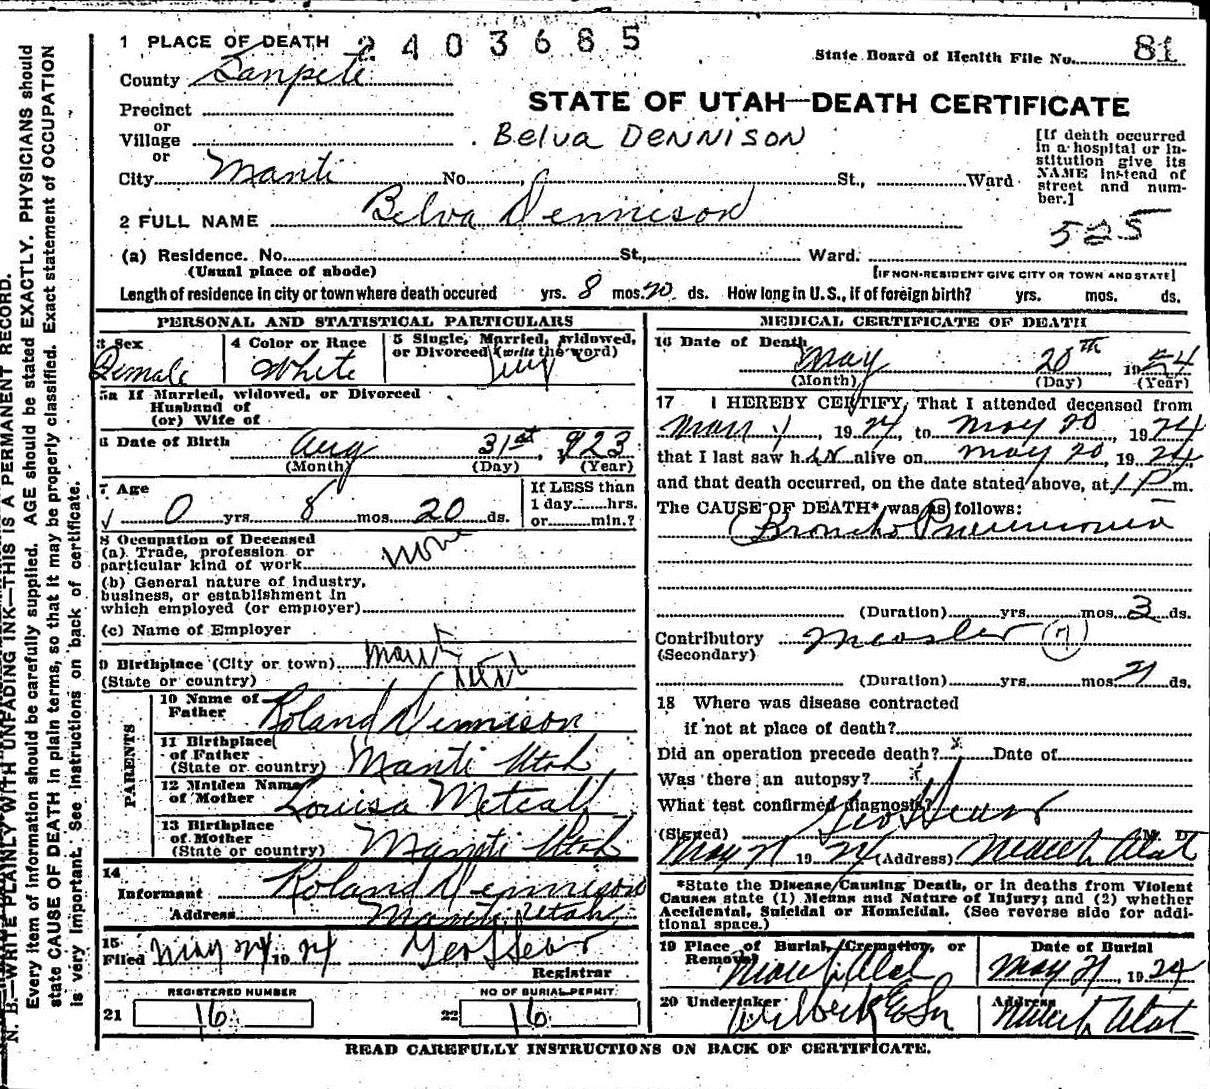 1 PLACE OF DEATH 2403685
State Board of Health File No. 81
County Sanpete
STATE OF UTAH—DEATH CERTIFICATE
Precinct
or
Village
Belva DENNISON
or
City Manti No. St., Ward
[If death occurred in a hospital or institution give its NAME instead of street and number.]
2 FULL NAME Belva Dennison
525
(a) Residence. No. St., Ward.
(Usual place of abode)
[IF NON-RESIDENT GIVE CITY OR TOWN AND STATE]
Length of residence in city or town where death occured yrs. 8 mos. 20 ds. How long in U.S., if of foreign birth? yrs. mos. ds.
PERSONAL AND STATISTICAL PARTICULARS
3 Sex
Female
4 Color or Race
White
5 Single, Married, widowed, or Divorced (write the word)
5a If Married, widowed, or Divorced
Husband of
(or) Wife of
6 Date of Birth Aug 31st, 1923
(Month) (Day) (Year)
7 Age
0 yrs. 8 mos. 20 ds.
If LESS than
1 day hrs.
or min.?
8 Occupation of Deceased
(a) Trade, profession or
particular kind of work none
(b) General nature of industry,
business, or establishment in
which employed (or employer)
(c) Name of Employer
9 Birthplace (City or town) Manti
(State or country) Utah
PARENTS
10 Name of Father Roland Dennison
11 Birthplace of Father (State or country) Manti Utah
12 Maiden Name of Mother Louisa Metcalf
13 Birthplace of Mother (State or country) Manti Utah
14
Informant Roland Dennison
Address Manti, Utah
15
Filed May 24 1924 Geo L Sears
Registrar
REGISTERED NUMBER
21 16
NO OF BURIAL PERMIT
22 16
MEDICAL CERTIFICATE OF DEATH
16 Date of Death May 20th, 1924
(Month) (Day) (Year)
17 I HEREBY CERTIFY, That I attended deceased from
1924, to May 20, 1924
that I last saw her alive on May 20, 1924,
and that death occurred, on the date stated above, at 1 P m.
The CAUSE OF DEATH* was as follows:
Broncho Pneumonia
(Duration) yrs. mos. 3 ds.
Contributory Measles (7)
(Secondary)
(Duration) yrs. mos. 21 ds.
18 Where was disease contracted
if not at place of death?
Did an operation precede death? x Date of
Was there an autopsy? x
What test confirmed diagnosis?
(Signed) Geo L Sears M. D.
May 21 1924 (Address) Manti Utah
*State the Disease Causing Death, or in deaths from Violent
Causes state (1) Means and Nature of Injury; and (2) whether
Accidental, Suicidal or Homicidal. (See reverse side for addi-
tional space.)
19 Place of Burial, Cremation, or Removal Manti Utah
Date of Burial
May 21, 1924
20 Undertaker
Address Manti Utah
READ CAREFULLY INSTRUCTIONS ON BACK OF CERTIFICATE.
N. B.—WRITE PLAINLY WITH UNFADING INK—THIS IS A PERMANENT RECORD.
Every item of information should be carefully supplied. AGE should be stated EXACTLY. PHYSICIANS should
state CAUSE OF DEATH in plain terms, so that it may be properly classified. Exact statement of OCCUPATION
is very important. See instructions on back of certificate.